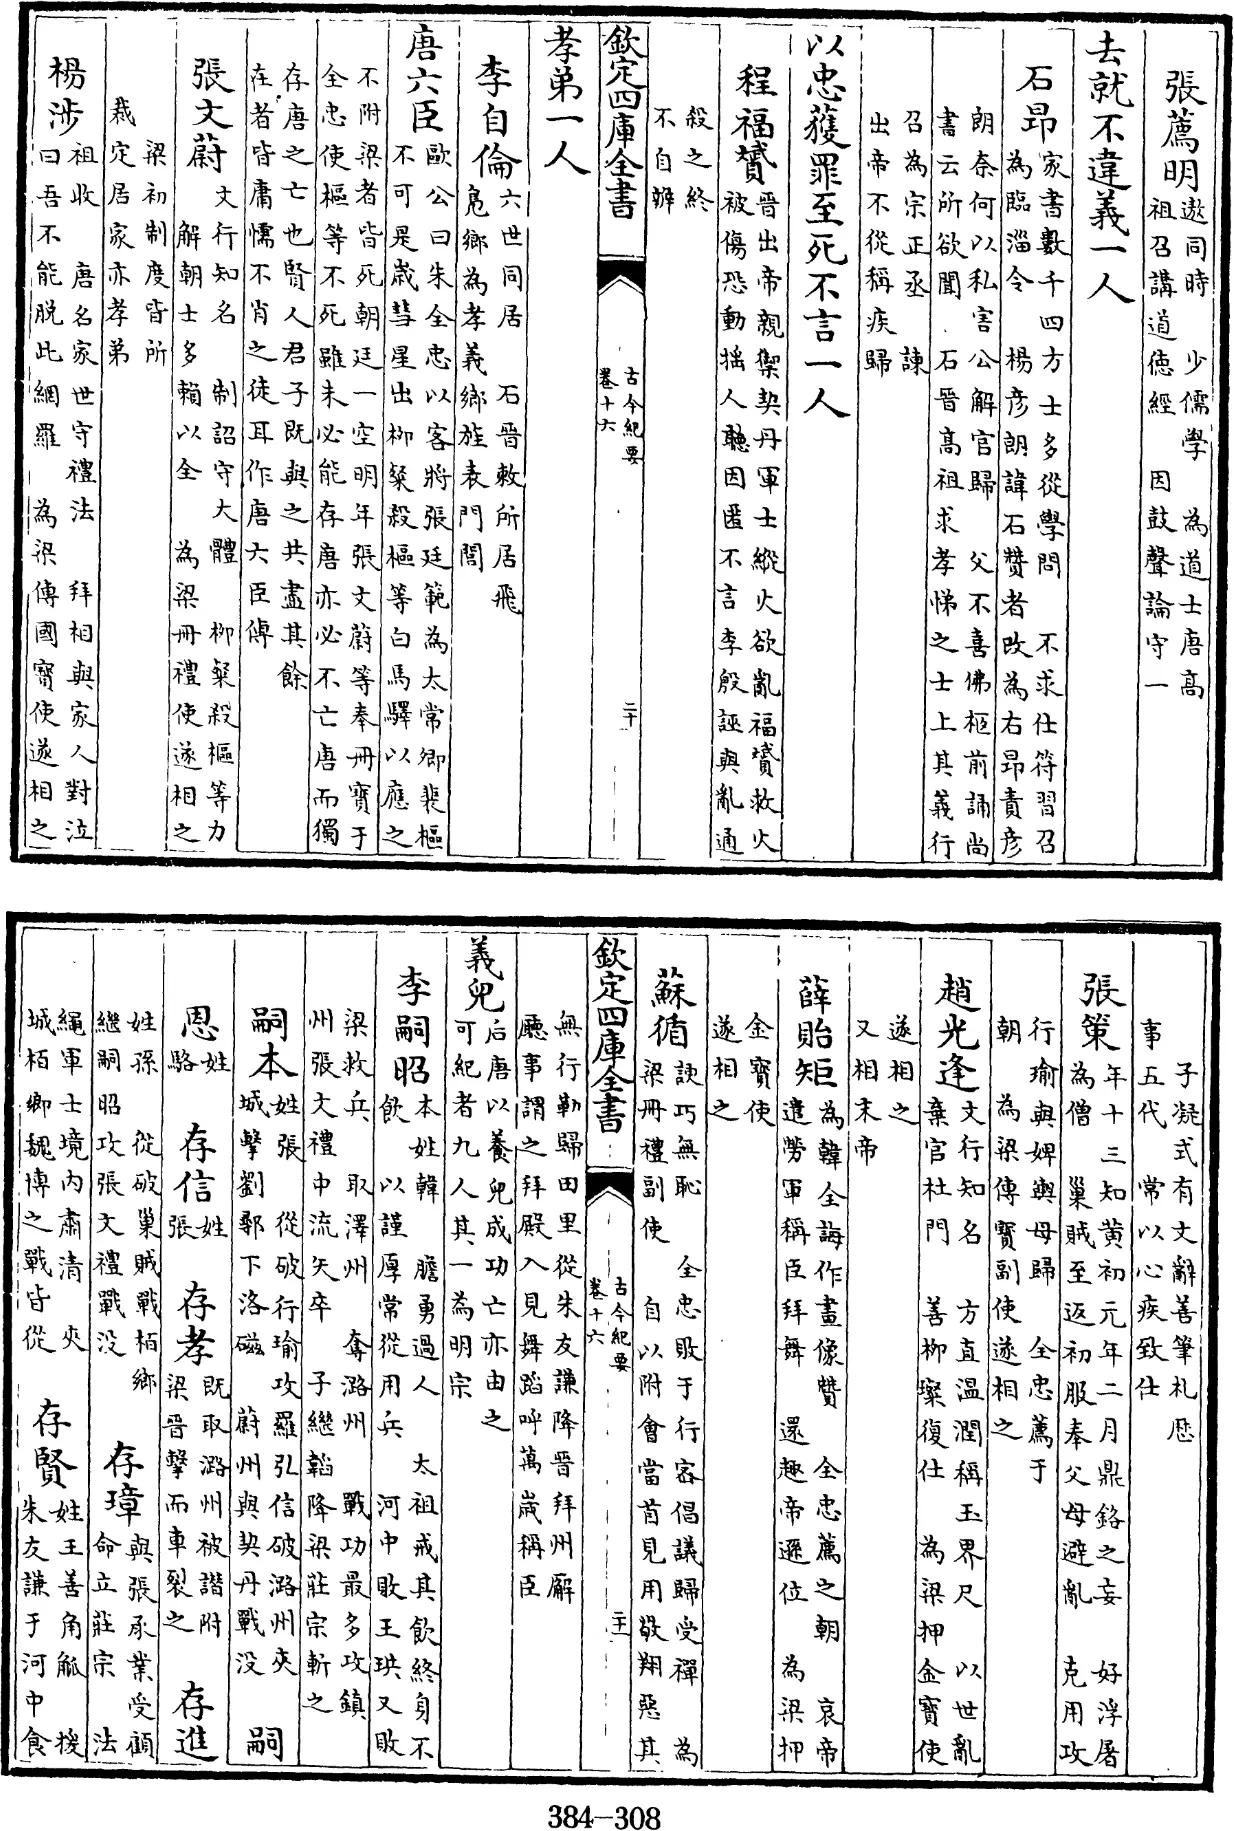 張薦明遨同時 少儒學 為道士唐高
祖召講道德經 因鼓聲論守一
去就不違義一人
石昂家書數千四方士多從學問 不求仕符習召
為臨淄令 楊彦朗諱石贊者改為右昂責彦
朗奈何以私害公解官歸 父不喜佛柩前誦尚
書云所欲聞 石晉高祖求孝悌之士上其義行
召為宗正丞 諫
出帝不從稱疾歸
以忠獲罪至死不言一人
程福贇晉出帝親禦契丹軍士縱火欲亂福贇救火
被傷恐動揺人聽因匿不言李殷誣與亂通
殺之終
不自辨
欽定四庫全書
古今紀要
卷十六
二十
孝弟一人
李自倫六世同居 石晉敕所居飛
鳬鄉為孝義鄉旌表門閭
唐六臣歐公曰朱全忠以客將張廷範為太常卿裴樞
不可是歲彗星出柳璨殺樞等白馬驛以應之
不附梁者皆死朝廷一空明年張文蔚等奉冊寶于
全忠使樞等不死雖未必能存唐亦必不亡唐而獨
存唐之亡也賢人君子既與之共盡其餘
在者皆庸懦不肖之徒耳作唐六臣傳
張文蔚文行知名 制詔守大體 柳璨殺樞等力
解朝士多賴以全 為梁冊禮使遂相之
梁初制度皆所
裁定居家亦孝弟
楊涉祖收 唐名家世守禮法 拜相與家人對泣
曰吾不能脫此網羅 為梁傳國寶使遂相之
子凝式有文辭善筆札歷
事五代 常以心疾致仕
張策年十三知黃初元年二月鼎銘之妄 好浮屠
為僧 巢賊至返初服奉父母避亂 克用攻
行瑜與婢輿母歸 全忠薦于
朝 為梁傳寶副使遂相之
趙光逢文行知名 方直温潤稱玉界尺 以世亂
棄官杜門 善柳璨復仕 為梁押金寶使
遂相之
又相末帝
薛貽矩為韓全誨作畫像贊 全忠薦之朝 哀帝
遣勞軍稱臣拜舞 還趣帝遜位 為梁押
金寶使
遂相之
蘇循諛巧無恥 全忠敗于行密倡議歸受禪 為
梁冊禮副使 自以附會當首見用敬翔惡其
欽定四庫全書
古今紀要
卷十六
二十一
無行勒歸田里從朱友謙降晉拜州廨
廳事謂之拜殿入見舞蹈呼萬歲稱臣
義兒后唐以養兒成功亡亦由之
可紀者九人其一為明宗
李嗣昭本姓韓 膽勇過人 太祖戒其飲終身不
飲 以謹厚常從用兵 河中敗王珙又敗
梁救兵 取澤州 奪潞州 戰功最多攻鎮
州張文禮中流矢卒 子繼韜降梁莊宗斬之
嗣本姓張 從破行瑜攻羅弘信破潞州夾
城擊劉鄩下洛磁 蔚州與契丹戰没 嗣
恩姓
駱 存信姓
張 存孝既取潞州被譖附
梁晉擊而車裂之 存進
姓孫 從破巢賊戰栢鄉
繼嗣昭攻張文禮戰没 存璋與張承業受顧
命立莊宗 法
繩軍士境内肅清 夾
城栢鄉魏博之戰皆從 存賢姓王善角觝 援
朱友謙于河中食
384-308